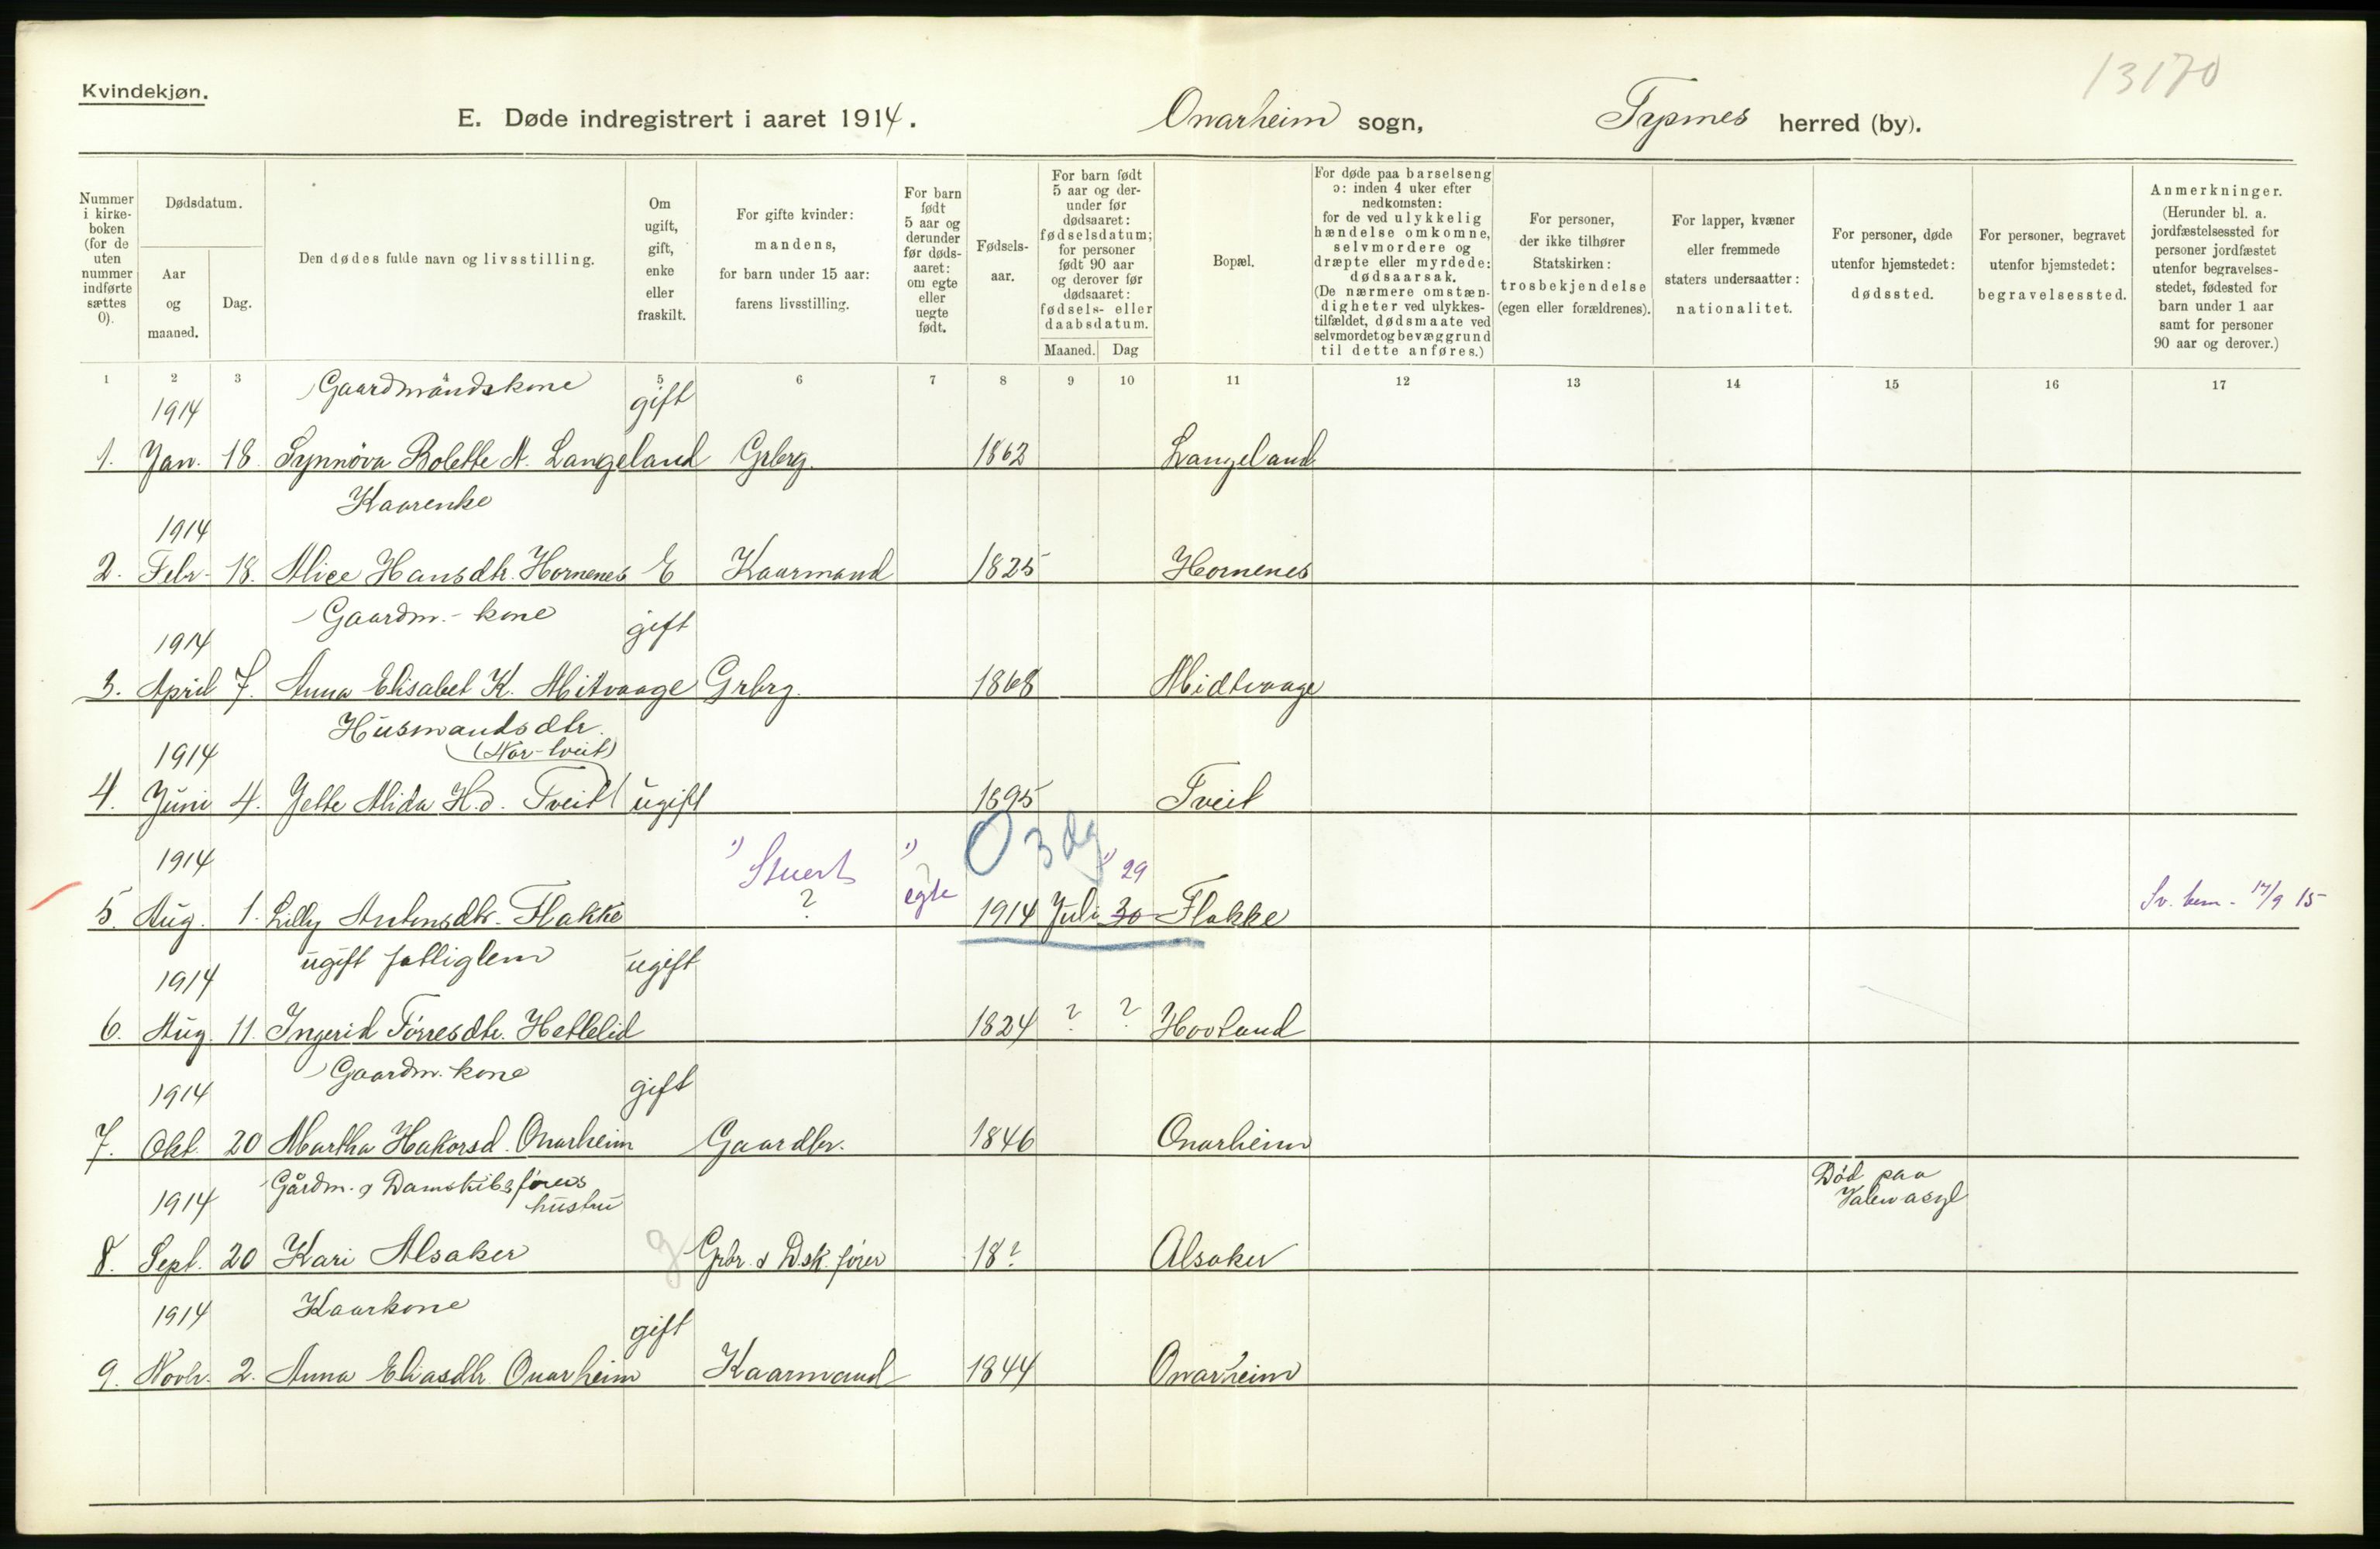 13170
Kvindekjøn.
E. Døde indregistrert i aaret 1914. Onarheim sogn, Tysnes herred (by).
Nummer i kirke-boken (for de uten nummer indførte sættes 0).
Dødsdatum.
Aar og maaned.
Dag.
Den dødes fulde navn og livsstilling.
Om ugift, gift, enke eller fraskilt.
For gifte kvinder: mandens, for barn under 15 aar: farens livsstilling.
For barn født 5 aar og derunder før døds-aaret: om egte eller uegte født.
Fødsels-aar.
For barn født 5 aar og der-under før dødsaaret: fødselsdatum; for personer født 90 aar og derover før dødsaaret: fødsels- eller daabsdatum.
Maaned. Dag
Bopæl.
For døde paa barselseng ɔ: inden 4 uker efter nedkomsten: for de ved ulykkelig hændelse omkomne, selvmordere og dræpte eller myrdede: dødsaarsak. (De nærmere omstæn-digheter ved ulykkes-tilfældet, dødsmaate ved selvmordet og bevæggrund til dette anføres.)
For personer, der ikke tilhører Statskirken: trosbekjendelse (egen eller forældrenes).
For lapper, kvæner eller fremmede staters undersaatter: nationalitet.
For personer, døde utenfor hjemstedet: dødssted.
For personer, begravet utenfor hjemstedet: begravelsessted.
Anmerkninger. (Herunder bl. a. jordfæstelsessted for personer jordfæstet utenfor begravelses-stedet, fødested for barn under 1 aar samt for personer 90 aar og derover.)
1 2 3 4 5 6 7 8 9 10 11 12 13 14 15 16 17
1914 Gaardmandskone gift
1. Jan. 18. Synnöva Bolette N. Langeland Grbrg. 1862 Langeland
1914 Kaarenke
2. Febr. 18. Alice Hansdtr. Hornenes E Kaarmand 1825 Hornenes
1914 Gaardm.-kone gift
3. April 7. Anna Elisabet K. Mitvaage Grbrg. 1868 Midtvaage
Husmandsdtr.
1914 (Nor-tveit)
4. Juni 4. Jette Alida H.d. Tveit ugift 1895 Tveit
1914 1) Stuert 1) 0 3 dg 1) 29
5. Aug. 1. Lilly Antonsdtr. Flakke ? egte 1914 Juli 30 Flakke Sv. hem. 17/9 15
1914 ugift fattiglem ugift
6. Aug. 11. Ingerid Törresdtr. Hetlelid 1824 ? ? Hovland
1914 Gaardm. kone gift
7. Okt. 20 Martha Hakorsd. Onarheim Gaardbr. 1846 Onarheim
1914 Gårdm. & Damskibsförers hustru Död paa Valen asyl
8. Sept. 20 Kari Alsaker g Grbr. & Dsk. förer 18? Alsaker
1914 Kaarkone gift
9. Novbr. 2. Anna Eliasdtr. Onarheim Kaarmand 1844 Onarheim